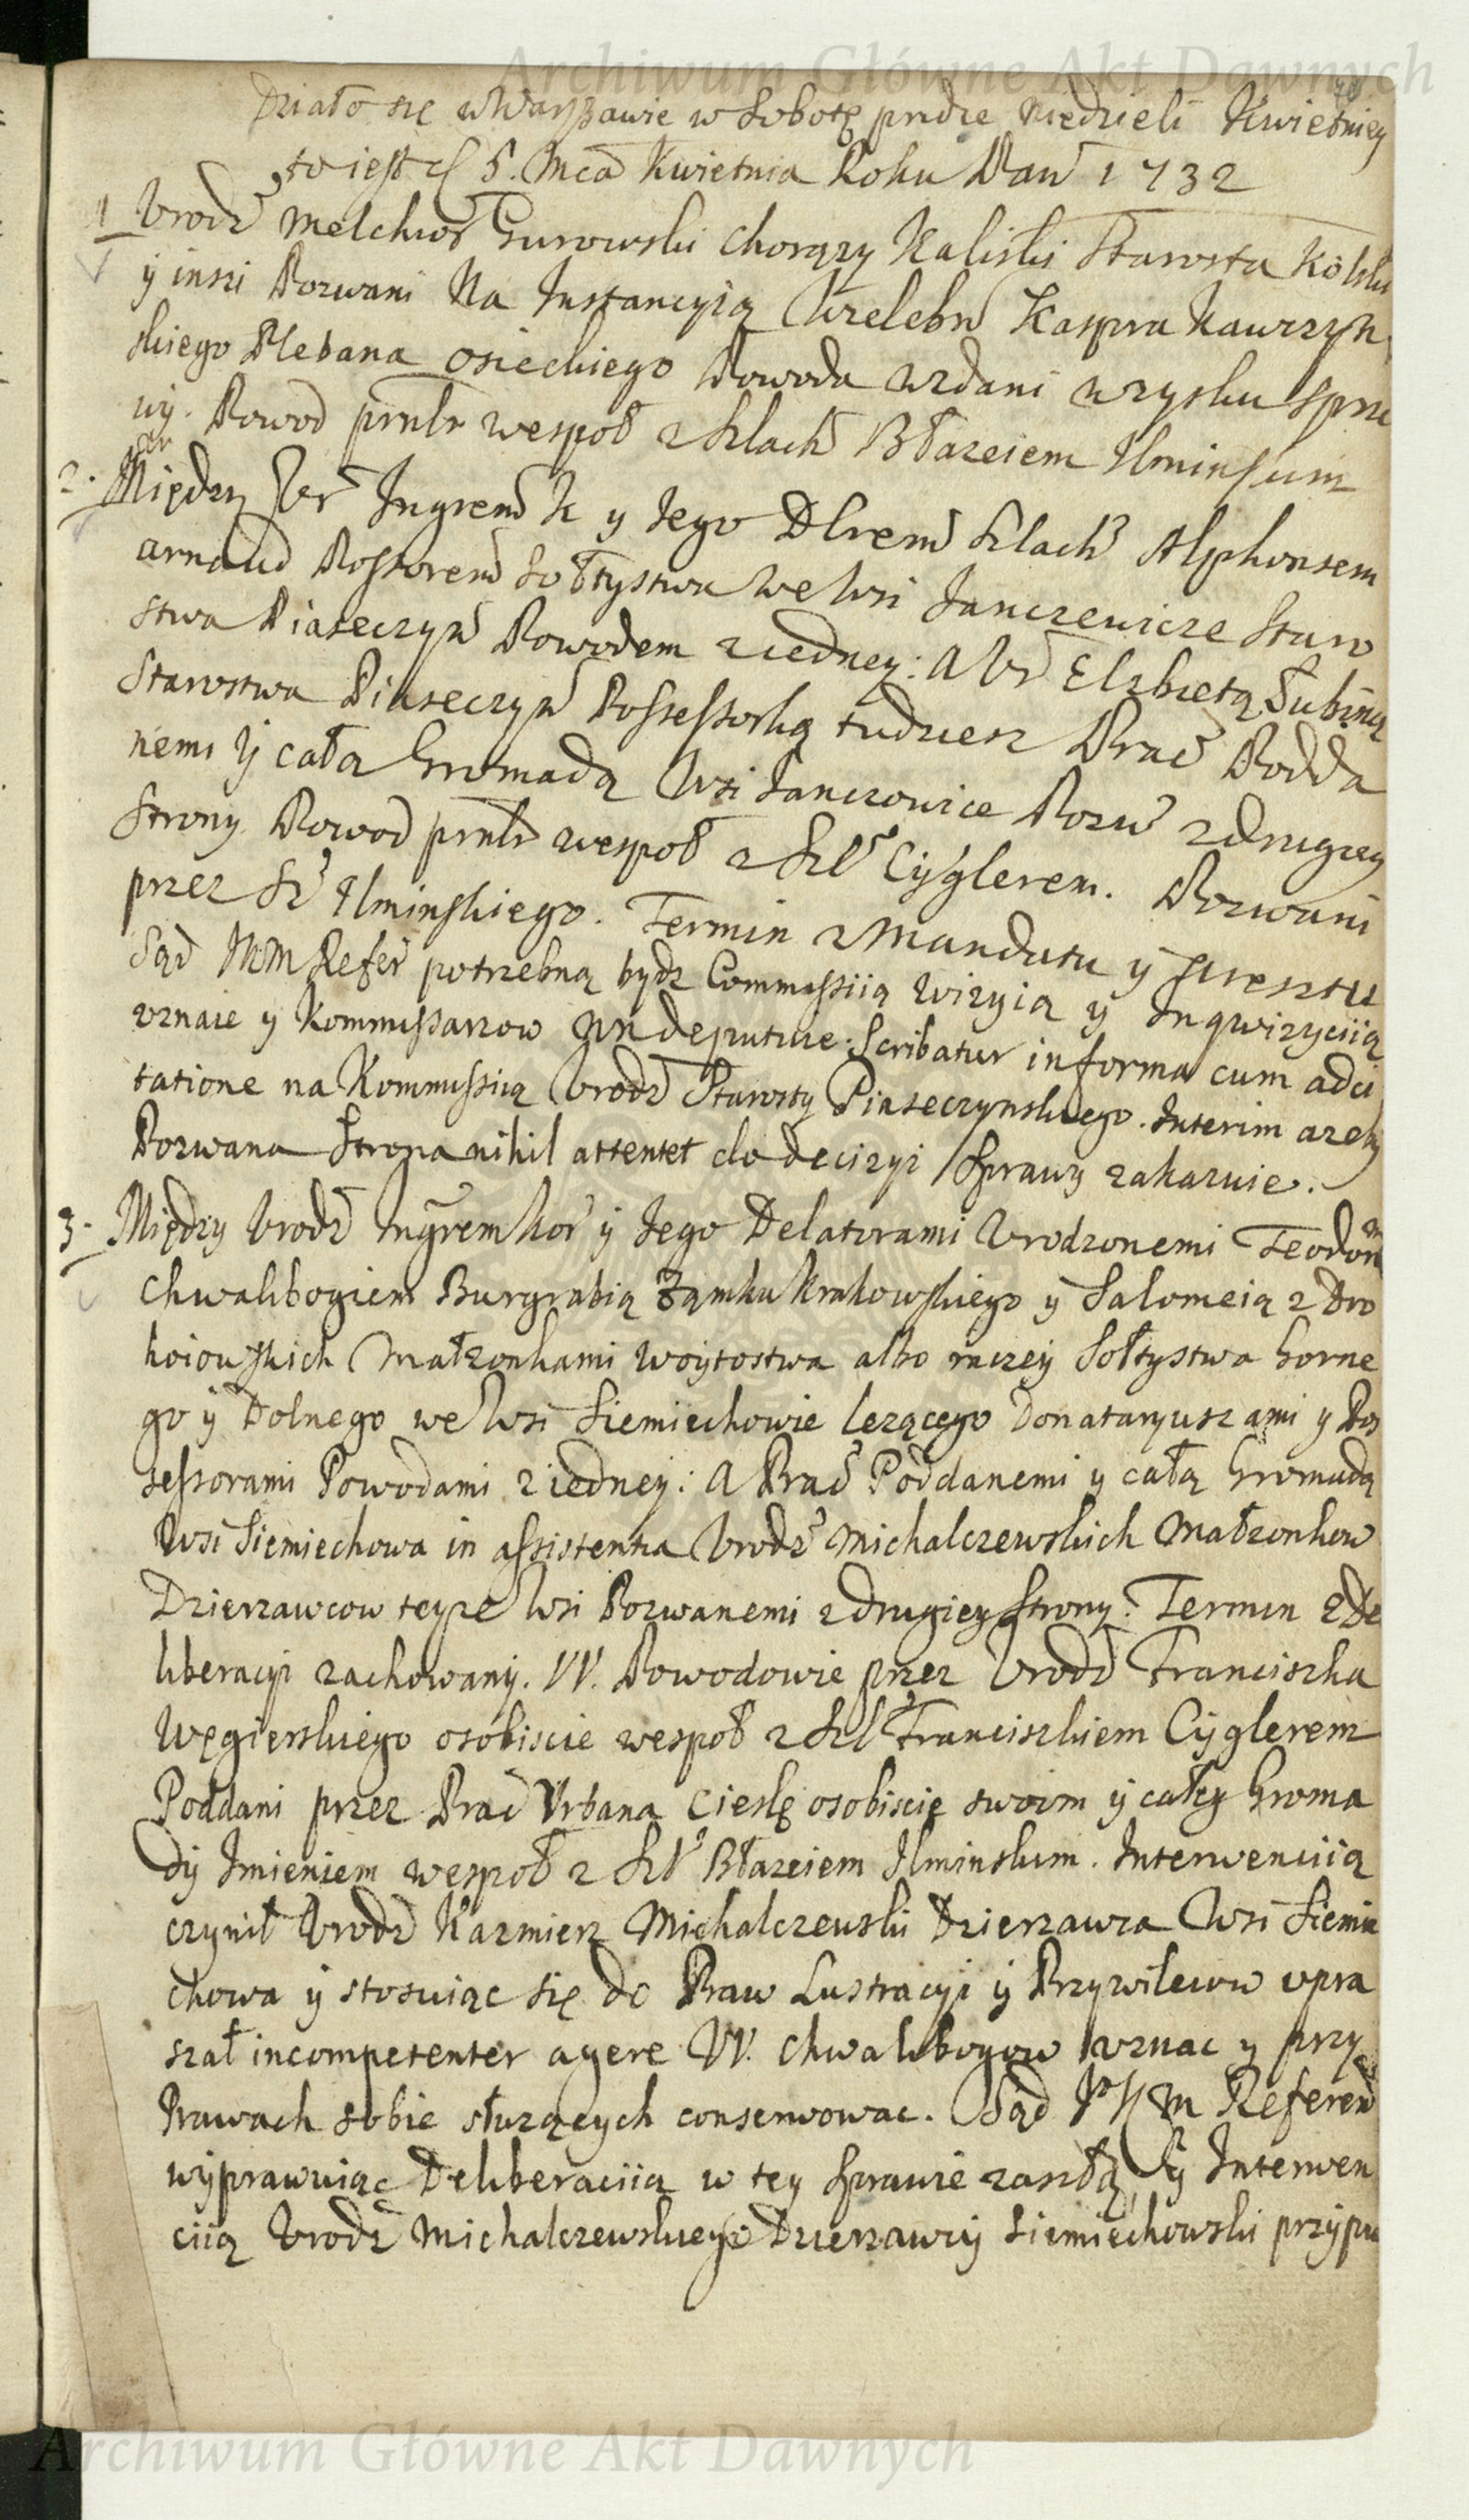 Archiwum Główne Akt Dawnych
Działo się w Warszawie w Sobotę pridie Niedzieli Kwietniey
to iest d. 5. Mca Kwietnia Roku Pań 1732
1 Urodz Melchior Gurowski Chorąży Kaliski Starosta Kolski
ÿ inszi Pozwani Na Instancyią Wielebn Kaspra Kawrzyn
skiego Plebana Osieckiego Powoda wzdani w zysku spra
wÿ. Powod prntr wespoł z Szlach Błażeiem Ilminskim
2. Między Ur Ingrem K y Jego Dlrem Szlach Alphonsem
arnaud Possorem Sołtystwa we Wsi Janczewicze Staro
stwa Piaseczyń Powodem z iedney: A Ur Elzbietą Łubiną
Starostwa Piaseczyń Possessorką tudziesz Prac Podda
nemi ÿ całą Gromadą Wsi Janczowice Pozw z drugiey
Strony. Powod prntr wespoł z Szl Cÿglerem. Pozwani
przez Sz Ilminskiego. Termin z Mandatu ÿ Aresztu
Sąd Refer potrzebną bydz Commissiią Wizyią ÿ Inqwizyciią
uznaie y Kommissarzow NN deputuie. Scribatur in forma cum adci
tatione na Kommissią Urodz Starosty Piaseczynskiego. Interim azeby
Pozwana Strona nihil attentet do decizyi Sprawy zakazuie.
3. Między Urodz Ingrem Kor ÿ Jego Delatorami Urodzonemi Teodorem
Chwalibogiem Burgrabią Zamku Krakowskiego ÿ Salomeią z Dro
hoiowskich Małzonkami Woÿtostwa albo raczeÿ Sołtystwa Gorne
go ÿ Dolnego we Wsi Siemiechowie lezącego Donataryuszami y Pos
sessorami Powodami z iedneÿ: A Prac Poddanemi y całą Gromadą
Wsi Siemiechowa in assistentia Urodz Michalczewskich Małzonkow
Dzierzawcow teyze Wsi Pozwanemi z drugiey Strony. Termin z De
liberacyi zachowanÿ. VV. Powodowie przez Urodz Franciszka
Węgierskiego osobiscie wespoł z Szl Franciszkiem Cÿglerem
Poddani przez Prac Urbana Cieslę osobiscie swoim ÿ całey Groma
dÿ Imieniem wespoł z Szl Błazeiem Ilminskim. Interwenciią
czynił Urodz Kazmierz Michalczewski Dzierzawca Wsi Siemie
chowa ÿ stosuiąc się do Praw Lustracyi ÿ Przywilewow upra
szał incompetenter agere VV. Chwalibogow uznac y przy
Prawach sobie słuzących conserwowac. Sąd Referen
wÿprawuiąc Deliberaciią w tey Sprawie zaszłą ÿ Interwen
ciią Urodz Michalczewskiego Dzierzawcÿ Siemiechowski przÿpu
Archiwum Główne Akt Dawnych